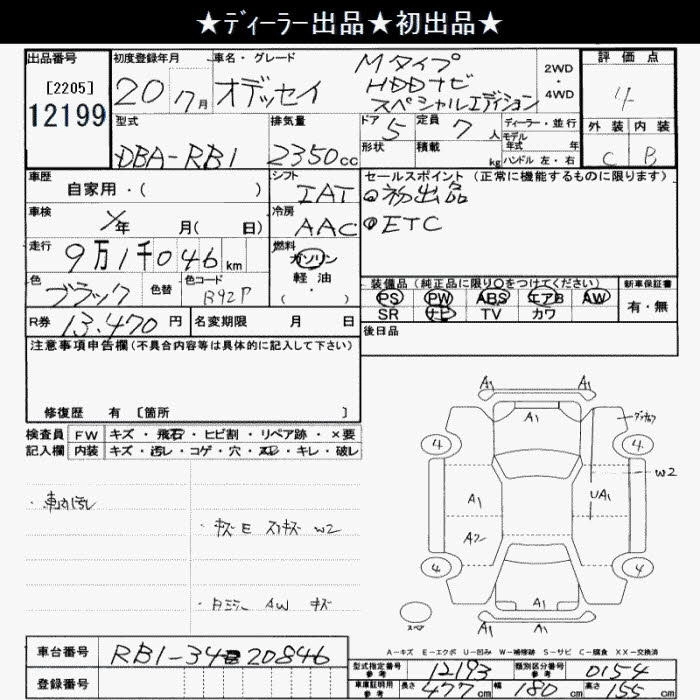 ★ディーラー出品★初出品★
出品番号
[2205]
12199
初度登録年月
20 7月
車名・グレード
オデッセイ
Mタイプ
HDDナビ
スペシャルエディション
2WD
・
4WD
評価点
4
外装 内装
C B
型式
DBA-RB1
排気量
2350cc
ドア 5
定員 7人
ディーラー・並行
モデル
年式 年
形状
積載 kg
ハンドル 左・右
車歴
自家用・( )
シフト
IAT
セールスポイント(正常に機能するものに限ります)
初出品
ETC
車検
年 月( 日)
冷房
AAC
走行
9万1千046km
燃料
ガソリン
軽油
( ・ )
色
ブラック
色替
色コード
B92P
装備品(純正品に限り○をつけてください)
PS PW ABS エアB AW
SR ナビ TV カワ
新車保証書
有・無
R券 13,470円
名変期限 月 日
後日品
注意事項申告欄(不具合内容等は具体的に記入して下さい)
修復歴 有 〔箇所 〕
検査員 FW キズ・飛石・ヒビ割・リペア跡・×要
記入欄 内装 キズ・汚レ・コゲ・穴・スレ・キレ・破レ
・車内汚レ
・キズE スリキズ W2
AW キズ
A1 A1
A1
4 4
W2
A1 UA1
A2
4 4
A1
A1 A1
スペア
A-キズ E-エクボ U-凹み W-補修跡 S-サビ C-腐食 XX-交換済
車台番号
RB1-34 20846
登録番号
型式指定番号
参考
12193
類別区分番号
参考
0154
車庫証明用
参考
長さ 477cm 幅 180cm 高さ 155cm